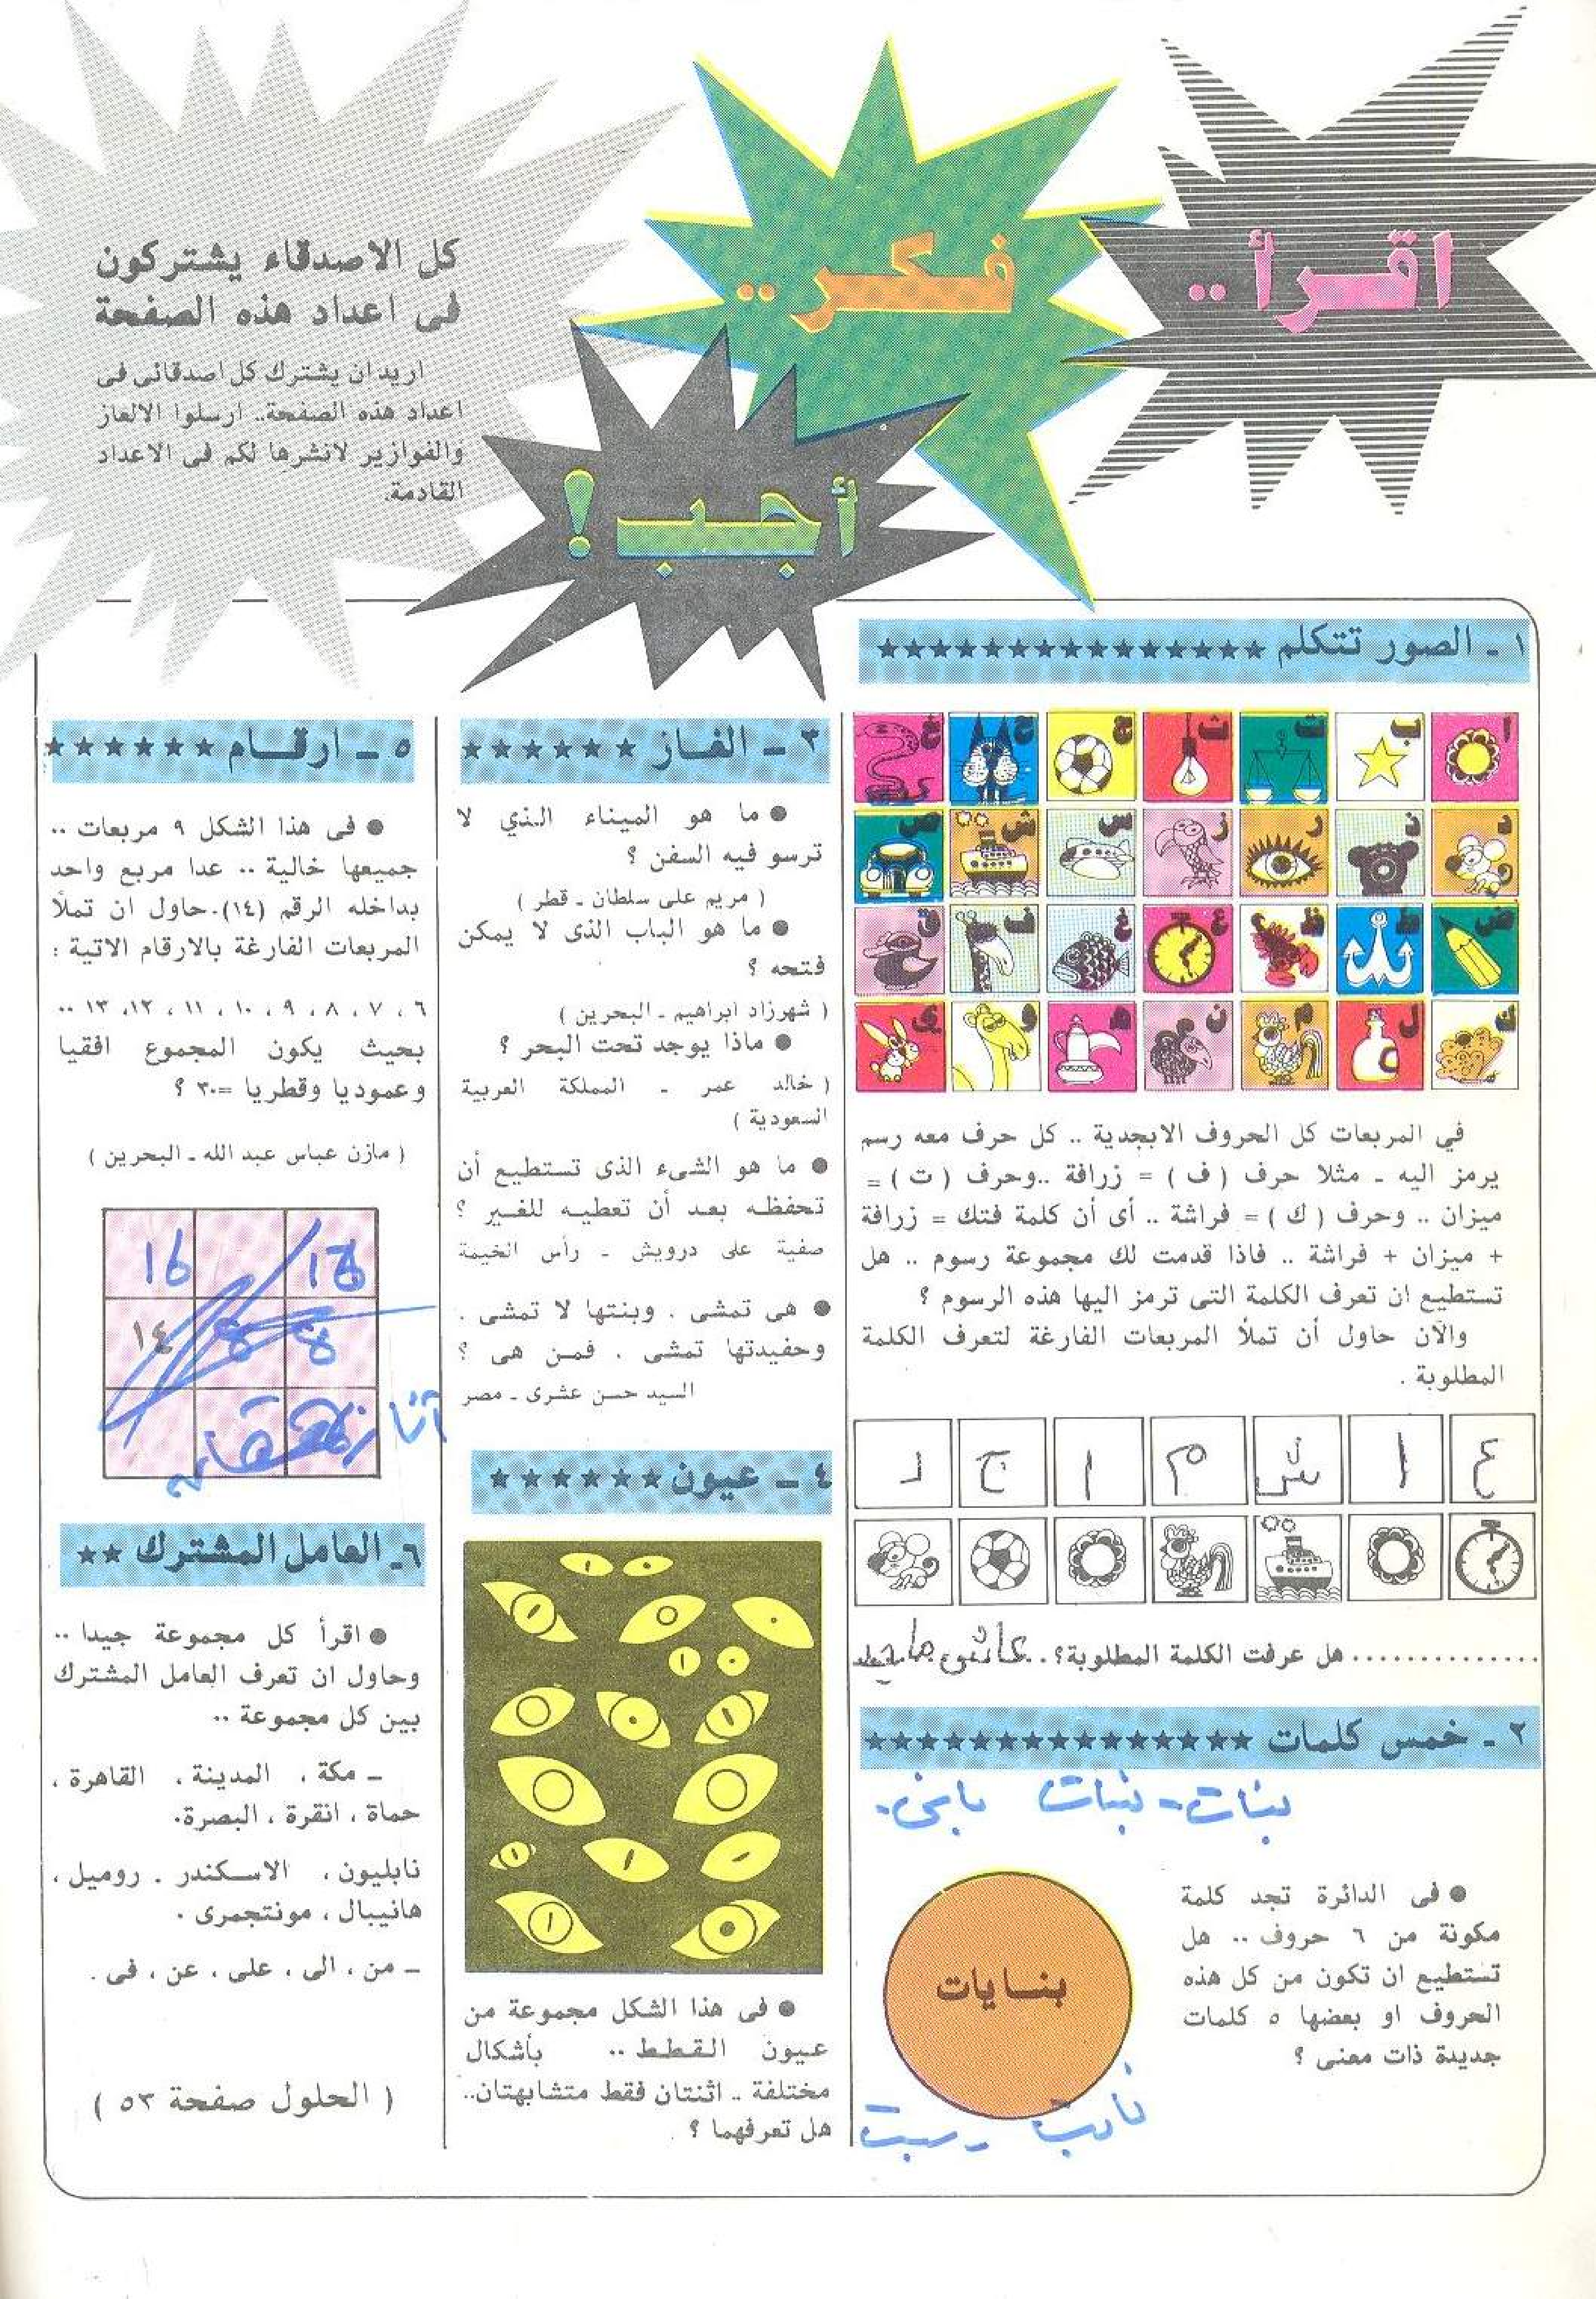 اقرأ ..
فكر ..
أجب !
كل الاصدقاء يشتركون
فى اعداد هذه الصفحة
اريد ان يشترك كل اصدقائى فى
اعداد هذه الصفحة.. ارسلوا الالغاز
والفوازير لانشرها لكم فى الاعداد
القادمة.
١ - الصور تتكلم
ا ب ت ث ج ح خ
د ذ ر ز س ش ص
ض ط ظ ع غ ف ق
ك ل م ن ه و ى
في المربعات كل الحروف الابجدية .. كل حرف معه رسم
يرمز اليه - مثلا حرف ( ف ) = زرافة ..وحرف ( ت ) =
ميزان .. وحرف ( ك ) = فراشة .. أى أن كلمة فتك = زرافة
+ ميزان + فراشة .. فاذا قدمت لك مجموعة رسوم .. هل
تستطيع ان تعرف الكلمة التى ترمز اليها هذه الرسوم ؟
والآن حاول أن تملأ المربعات الفارغة لتعرف الكلمة
المطلوبة .
ع ا ش م ا ج د
هل عرفت الكلمة المطلوبة؟.. عاش ماجد
٢ - خمس كلمات
بنات - نبات
● فى الدائرة تجد كلمة
مكونة من ٦ حروف .. هل
تستطيع ان تكون من كل هذه
الحروف او بعضها ٥ كلمات
جديدة ذات معنى ؟
بنايات
٣ - الغاز
● ما هو الميناء الذي لا
ترسو فيه السفن ؟
( مريم على سلطان - قطر )
● ما هو الباب الذى لا يمكن
فتحه ؟
( شهرزاد ابراهيم - البحرين )
● ماذا يوجد تحت البحر ؟
( خالد عمر - المملكة العربية
السعودية )
● ما هو الشىء الذى تستطيع أن
تحفظه بعد أن تعطيه للغير ؟
صفية على درويش - رأس الخيمة
● هى تمشى . وبنتها لا تمشى .
وحفيدتها تمشى . فمن هى ؟
السيد حسن عشرى - مصر
٤ - عيون
● فى هذا الشكل مجموعة من
عيون القطط .. بأشكال
مختلفة .. اثنتان فقط متشابهتان..
هل تعرفهما ؟
٥ - ارقام
● فى هذا الشكل ٩ مربعات ..
جميعها خالية .. عدا مربع واحد
بداخله الرقم (١٤)..حاول ان تملأ
المربعات الفارغة بالارقام الاتية :
٦ ، ٧ ، ٨ ، ٩ ، ١٠ ، ١١ ، ١٢، ١٣ ..
بحيث يكون المجموع افقيا
وعموديا وقطريا =٣٠ ؟
( مازن عباس عبد الله - البحرين )
16
١٤ 8 8
٦- العامل المشترك
● اقرأ كل مجموعة جيدا ..
وحاول ان تعرف العامل المشترك
بين كل مجموعة ..
- مكة ، المدينة ، القاهرة ،
حماة ، انقرة ، البصرة.
نابليون ، الاسكندر . روميل ،
هانيبال ، مونتجمرى .
- من ، الى ، على ، عن ، فى .
( الحلول صفحة ٥٣ )